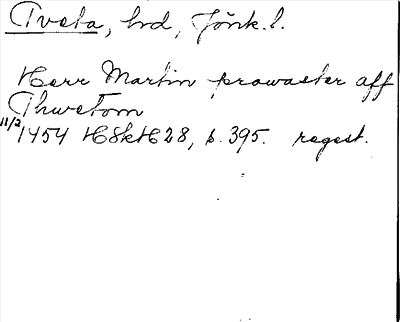 Tveta, hrd, Jönk. l.
Herr Martin prowaster aff
Thwetom
11/2 1454 HSkH 28, s. 395. regest.